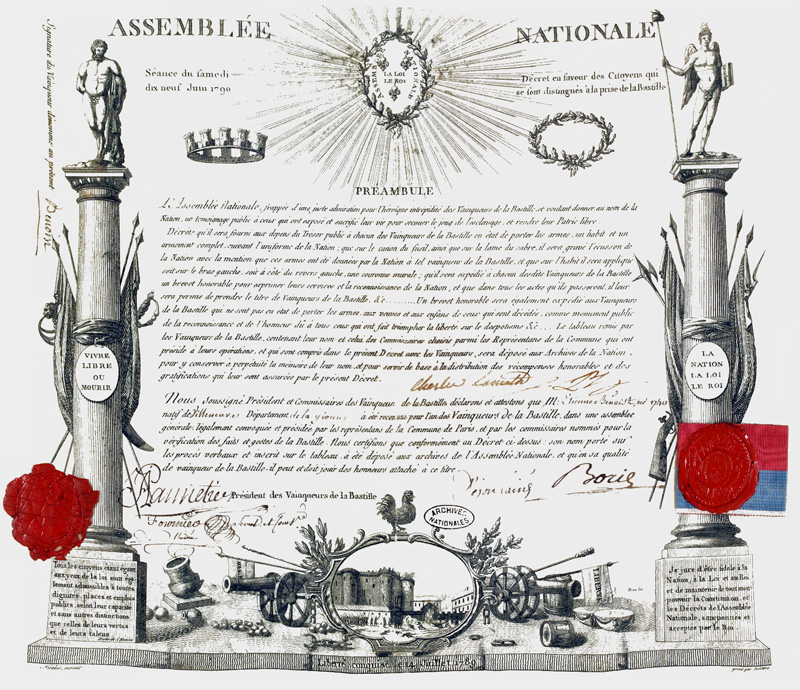 ASSEMBLÉE NATIONALE
Séance du samedi
dix neuf Juin 1790
ASSEMB NATIONALE
LA LOI
LE ROI
Décret en faveur des Citoyens qui
se sont distingués à la prise de la Bastille
Signature du Vainqueur dénommé au présent
Benoist
PRÉAMBULE
L'Assemblée Nationale, frappée d'une juste admiration pour l'héroïque intrépidité des Vainqueurs de la Bastille, et voulant donner, au nom de la
Nation, un témoignage public à ceux qui ont exposé et sacrifié leur vie pour secouer le joug de l'esclavage, et rendre leur Patrie libre
Décrète qu'il sera fourni aux dépens du Trésor public à chacun des Vainqueurs de la Bastille en état de porter les armes, un habit et un
armement complet, suivant l'uniforme de la Nation; que sur le canon du fusil, ainsi que sur la lame du sabre, il sera gravé l'écusson de
la Nation avec la mention que ces armes ont été données par la Nation à tel vainqueur de la Bastille, et que sur l'habit il sera appliqué
soit sur le bras gauche, soit à côté du revers gauche, une couronne murale; qu'il sera expédié à chacun desdits Vainqueurs de la Bastille
un brevet honorable pour exprimer leurs services et la reconnaissance de la Nation, et que dans tous les actes qu'ils passeront, il leur
sera permis de prendre le titre de Vainqueurs de la Bastille, &c ......... Un brevet honorable sera également expédié aux Vainqueurs
de la Bastille qui ne sont pas en état de porter les armes, aux veuves et aux enfans de ceux qui sont décédés, comme monument public
de la reconnaissance et de l'honneur dû à tous ceux qui ont fait triompher la liberté sur le despotisme &c ... Le tableau remis par
les Vainqueurs de la Bastille, contenant leur nom et celui des Commissaires choisis parmi les Représentans de la Commune qui ont
présidé à leurs opérations, et qui sont compris dans le présent Décret avec les Vainqueurs, sera déposé aux Archives de la Nation,
pour y conserver à perpétuité la mémoire de leur nom, et pour servir de base à la distribution des récompenses honorables et des
gratifications qui leur sont assurées par le présent Décret.
Charles Lameth
Nous Soussigné Président et Commissaires des Vainqueur de la Bastille déclarons et attestons que M: Etienne Benoist
natif de Villeneuve Département de la yonne a été reçu pour l'un des Vainqueurs de la Bastille, dans une assemblée
générale, légalement convoquée et présidée par les représentans de la Commune de Paris, et par les commissaires nommés pour la
vérification des faits et gestes de la Bastille. Nous certifions que conformément au Décret ci-dessus, son nom porté sur
les procès verbaux et inscrit sur le tableau, a été déposé aux archives de l'Assemblée Nationale, et qu'en sa qualité
de vainqueur de la Bastille, il peut et doit jouir des honneurs attaché à ce titre.
Président des Vainqueurs de la Bastille
Fournier
Borie
VIVRE
LIBRE
OU
MOURIR
LA
NATION
LA LOI
LE ROI
ARCHIVES
NATIONALES
Tous les citoyens étant égaux
aux yeux de la loi sont ég-
lement admissibles à toutes
dignités, places et emplois
publics, selon leur capacité
et sans autres distinctions
que celles de leurs vertus
et de leurs talens
Je jure d'être fidèle à la
Nation, à la Loi et au Roi
et de maintenir de tout mon
pouvoir la Constitution et
les Décrets de l'Assemblée
Nationale, sanctionnés et
acceptés par le Roi
Liberté conquise le 14 Juillet 1789
Nicolas, inscrit
gravé par